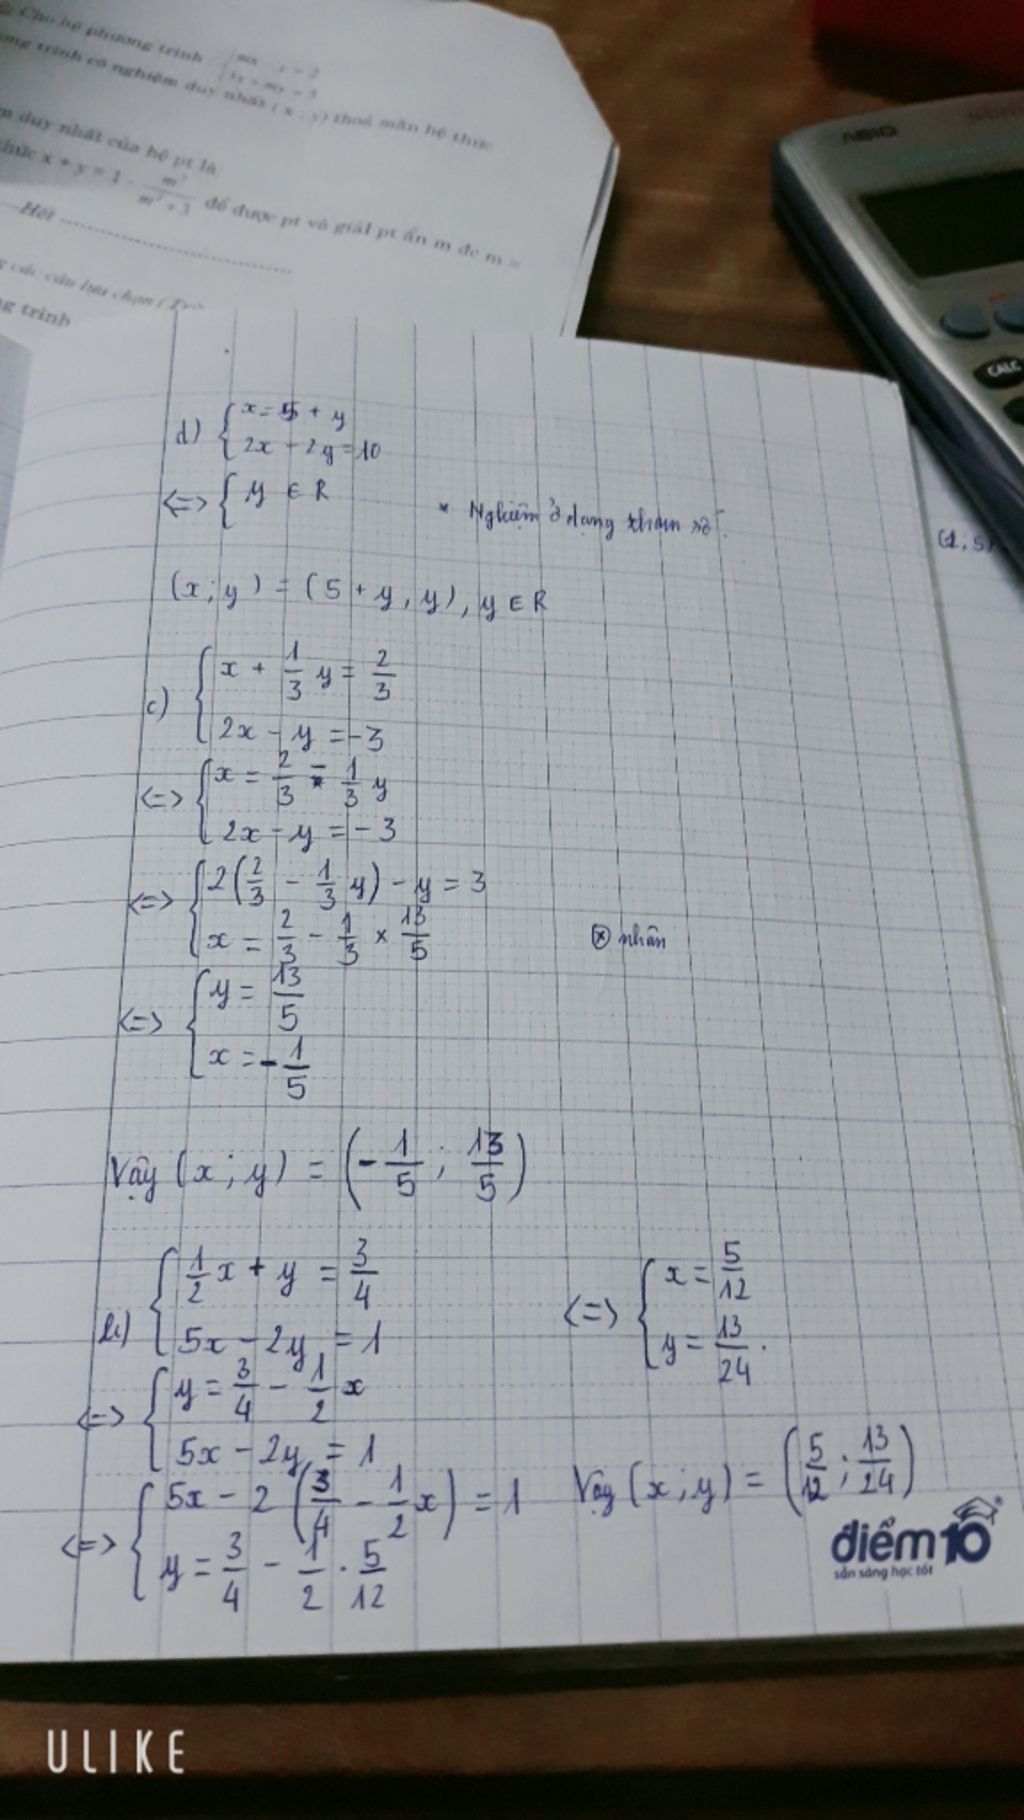 Cho hệ phương trình
trình có nghiệm duy nhất (x; y) thoả mãn hệ thức
duy nhất của hệ pt là:
thức x + y = 1 - m²/(m² + 3) để được pt và giải pt ẩn m đc m =
Hết
các câu lựa chọn
trình
CALC
d) { x = 5 + y
2x - 2y = 10
<=> { y ∈ R
* Nghiệm ở dạng tham số.
(1; 5)
(x; y) = (5 + y, y), y ∈ R
c) { x + 1/3 y = 2/3
2x - y = -3
<=> { x = 2/3 - 1/3 y
2x - y = -3
<=> { 2(2/3 - 1/3 y) - y = 3
x = 2/3 - 1/3 × 13/5
⊗ nhân
<=> { y = 13/5
x = -1/5
Vậy (x; y) = (-1/5; 13/5)
b) { 1/2 x + y = 3/4
5x - 2y = 1
<=> { y = 3/4 - 1/2 x
5x - 2y = 1
<=> { 5x - 2(3/4 - 1/2 x) = 1
y = 3/4 - 1/2 . 5/12
<=> { x = 5/12
y = 13/24.
Vậy (x; y) = (5/12; 13/24)
điểm 10
sẵn sàng học tốt
ULIKE